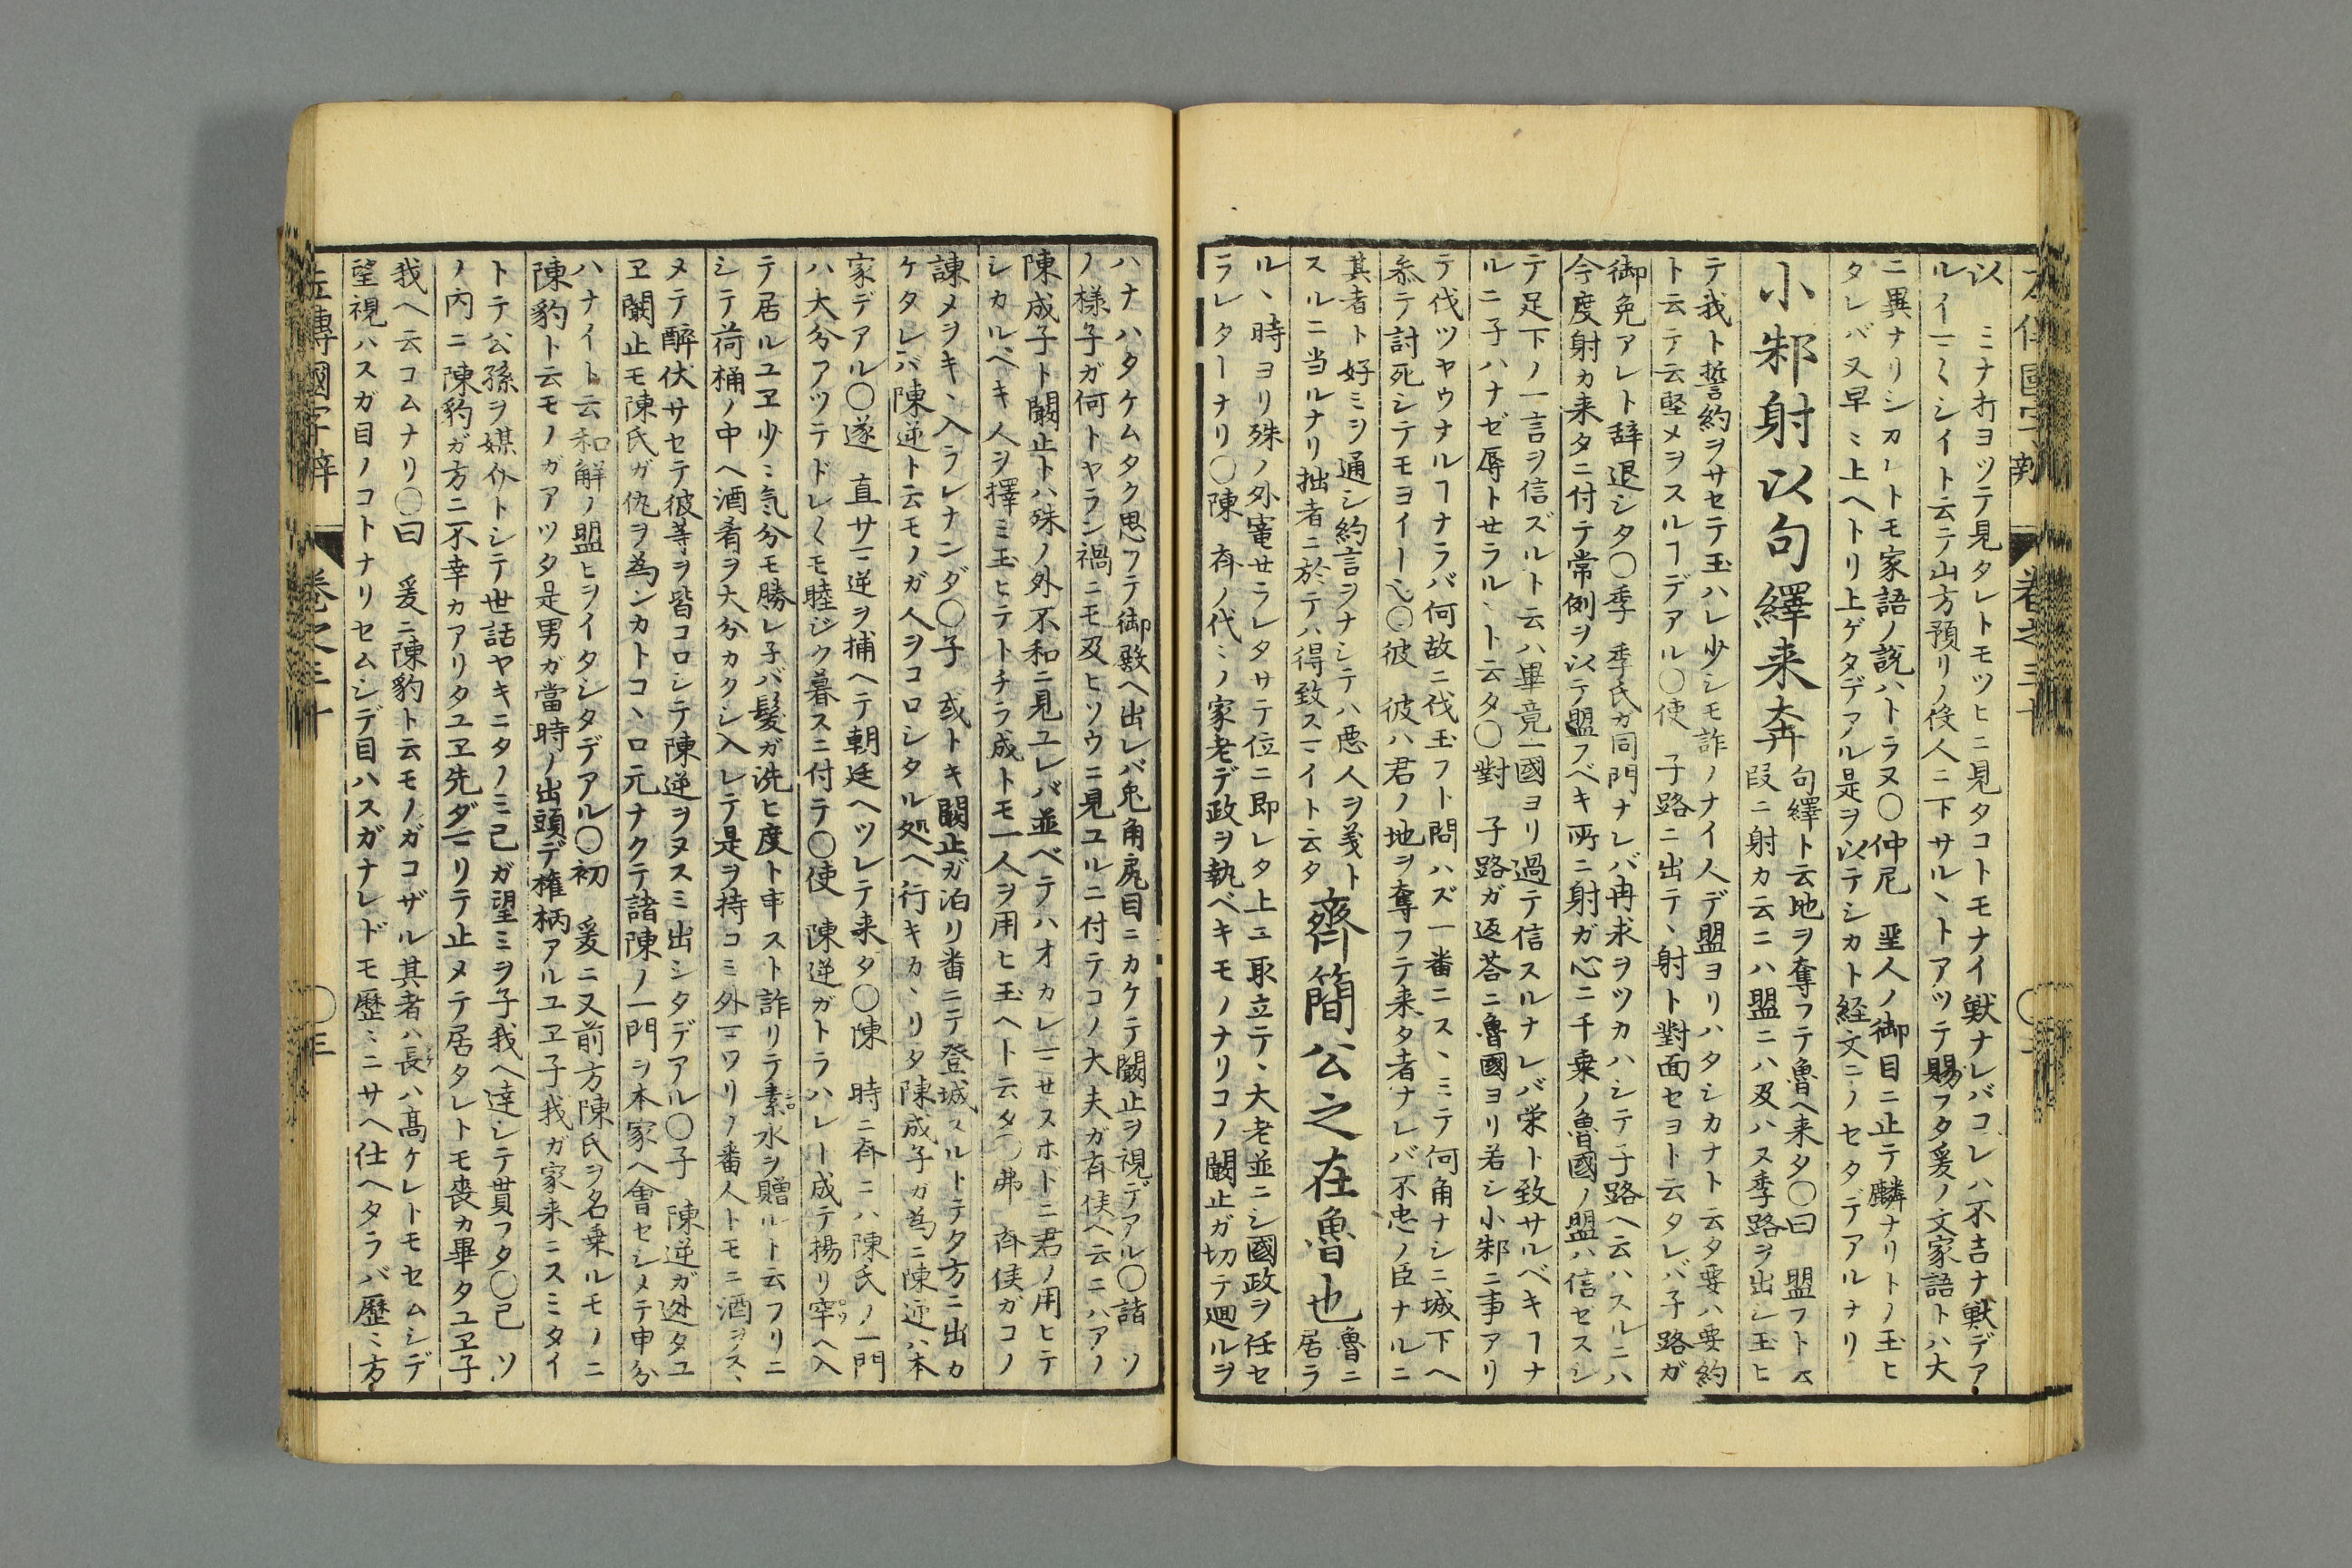 左傳國字辯 卷之三十
以 ミナ打ヨツテ見タレトモツヒニ見タコトモナイ獣ナレバコレハ不吉ナ獣デア
ルイーシイト云テ山方預リノ役人ニ下サルヽトアツテ賜フタ爰ノ文家語トハ大
ニ異ナリシカレトモ家語ノ説ハトラヌ〇仲尼 聖人ノ御目ニ止テ麟ナリトノ玉ヒ
タレバ又早ミ上ヘトリ上ゲタデアル是ヲ以テシカト経文ニノセタデアルナリ
小邾射以句繹来奔
句繹ト云地ヲ奪フテ魯ヘ来タ〇曰 盟フトス
段ニ射カ云ニハ盟ニハ及ハス季路ヲ出シ玉ヒ
テ我ト誓約ヲサセテ玉ハレ少シモ詐ノナイ人デ盟ヨリハタシカナト云タ要ハ要約
ト云テ云堅メヲスルヿデアル〇使 子路ニ出テヽ射ト對面セヨト云タレバ子路ガ
御免アレト辞退シタ〇季 季氏ガ同門ナレバ冉求ヲツカハシテ子路ヘ云ハスルニハ
今度射カ来タニ付テ常例ヲ以テ盟フベキ所ニ射ガ心ニ千乗ノ魯國ノ盟ハ信ゼスシ
テ足下ノ一言ヲ信ズルト云ハ畢竟一國ヨリ過テ信スルナレバ栄ト致サルベキヿナ
ルニ子ハナゼ辱トセラルヽト云タ〇對 子路ガ返荅ニ魯國ヨリ若シ小邾ニ事アリ
テ伐ツヤウナルヿナラバ何故ニ伐玉フト問ハズ一番ニスヽミテ何角ナシニ城下ヘ
参テ討死シテモヨイ〇彼 彼ハ君ノ地ヲ奪フテ来タ者ナレバ不忠ノ臣ナルニ
其者ト好ミヲ通シ約言ヲナシテハ悪人ヲ義ト
スルニ当ルナリ拙者ニ於テハ得致スマイト云タ
齊簡公之在魯也
魯ニ
居ラ
ルヽ時ヨリ殊ノ外寵セラレタサテ位ニ即レタ上ニ取立テヽ大老並ニシ國政ヲ任セ
ラレターナリ〇陳 斉ノ代ミノ家老デ政ヲ執ベキモノナリコノ闞止ガ切テ廻ルヲ
ハナハタケムタク思フテ御殿ヘ出レバ兎角尻目ニカケテ闞止ヲ視デアル〇諸 ソ
ノ様子ガ何トヤラン禍ニモ及ヒソウニ見ユルニ付テコノ大夫ガ斉侯ヘ云ニハアノ
陳成子ト闞止トハ殊ノ外不和ニ見ユレバ並ベテハオカレマセスホトニ君ノ用ヒテ
シカルベキ人ヲ擇ミ玉ヒテトチラ成トモ一人ヲ用ヒ玉ヘト云タ〇弗 斉侯ガコノ
諫メヲキヽ入ラレナンダ〇子 或トキ闞止ガ泊リ番ニテ登城スルトテタ方ニ出カ
ケタレバ陳逆ト云モノガ人ヲコロシタル処ヘ行キカヽリタ陳成子ガ為ニ陳逆ハ本
家デアル〇遂 直サマ逆ヲ捕ヘテ朝廷ヘツレテ来タ〇陳 時ニ斉ニハ陳氏ノ一門
ハ大分アツテドレ〱モ睦ジク暮スニ付テ〇使 陳逆ガトラハレー成テ揚リ窂ヘ入
テ居ルユヱ少ミ気分モ勝レ子バ髪ガ洗ヒ度ト申スト詐リテ素水ヲ贈ルト云フリニ
シテ荷桶ノ中ヘ酒肴ヲ大分カクシ入レテ是ヲ持コミ外マワリノ番人トモニ酒ヲノス
メテ醉伏サセテ彼等ヲ皆コロシテ陳逆ヲヌスミ出シタデアル〇子 陳逆ガ逃タユ
ヱ闞止モ陳氏ガ仇ヲ為ンカトコヽロ元ナクテ諸陳ノ一門ヲ本家ヘ會セシメテ申分
ハナイト云和解ノ盟ヒヲイタシタデアル〇初 爰ニ又前方陳氏ヲ名乗ルモノニ
陳豹ト云モノガアツタ是男ガ當時ノ出頭デ権柄アルユヱ子我ガ家来ニスミタイ
トテ公孫ヲ媒介トシテ世話ヤキニタノミ己ガ望ミヲ子我ヘ達シテ貰フタ〇己 ソ
ノ内ニ陳豹ガ方ニ不幸カアリタユヱ先ダマリテ止メテ居タレトモ喪カ畢タユヱ子
我ヘ云コムナリ〇曰 爰ニ陳豹ト云モノガコザル其者ハ長ハ髙ケレトモセムシデ
望視ハスガ目ノコトナリセムシデ目ハスガナレドモ歴ミニサヘ仕ヘタラバ歴ミ方
左傳國字辯 卷之三十 〇三